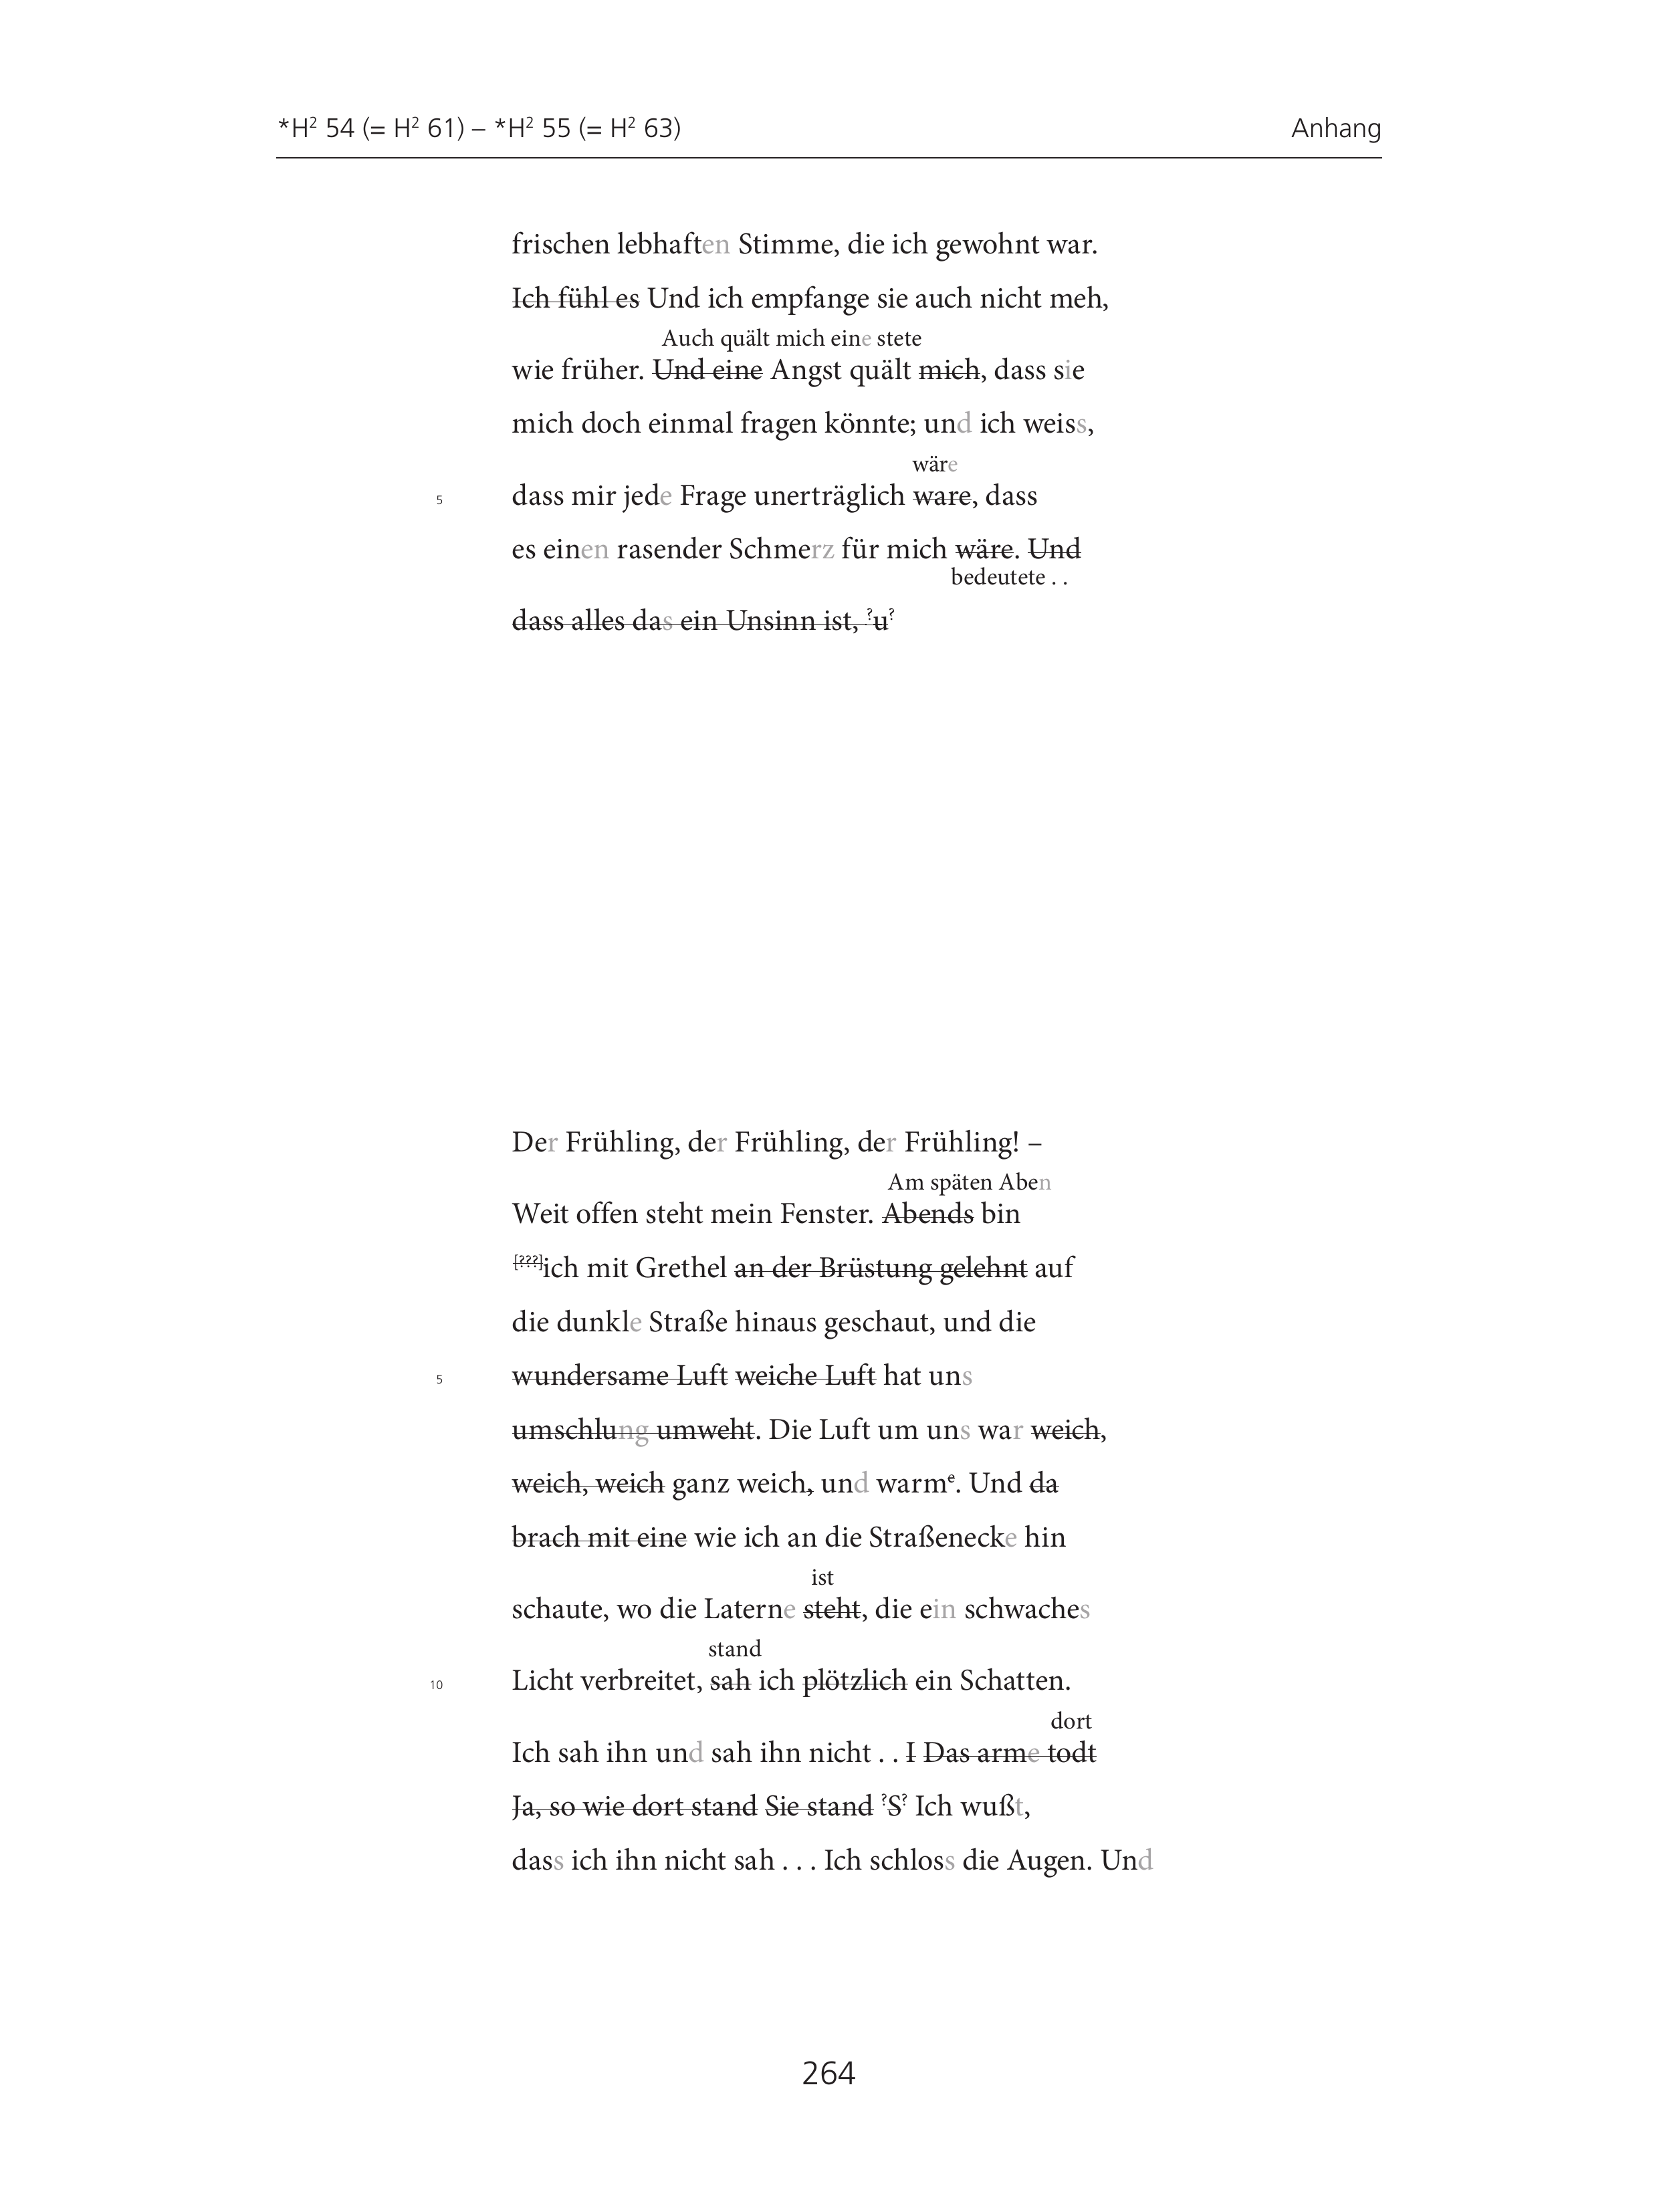 *H² 54 (= H² 61) – *H² 55 (= H² 63) Anhang
frischen lebhaften Stimme, die ich gewohnt war.
Ich fühl es Und ich empfange sie auch nicht meh,
Auch quält mich eine stete
wie früher. Und eine Angst quält mich, dass sie
mich doch einmal fragen könnte; und ich weiss,
wäre
5 dass mir jede Frage unerträglich ware, dass
es einen rasender Schmerz für mich wäre. Und
bedeutete . .
dass alles das ein Unsinn ist, ?u?
Der Frühling, der Frühling, der Frühling! –
Am späten Aben
Weit offen steht mein Fenster. Abends bin
[???]ich mit Grethel an der Brüstung gelehnt auf
die dunkle Straße hinaus geschaut, und die
5 wundersame Luft weiche Luft hat uns
umschlung umweht. Die Luft um uns war weich,
weich, weich ganz weich, und warmᵉ. Und da
brach mit eine wie ich an die Straßenecke hin
ist
schaute, wo die Laterne steht, die ein schwaches
stand
10 Licht verbreitet, sah ich plötzlich ein Schatten.
dort
Ich sah ihn und sah ihn nicht . . I Das arme todt
Ja, so wie dort stand Sie stand ?S? Ich wußt,
dass ich ihn nicht sah . . . Ich schloss die Augen. Und
264